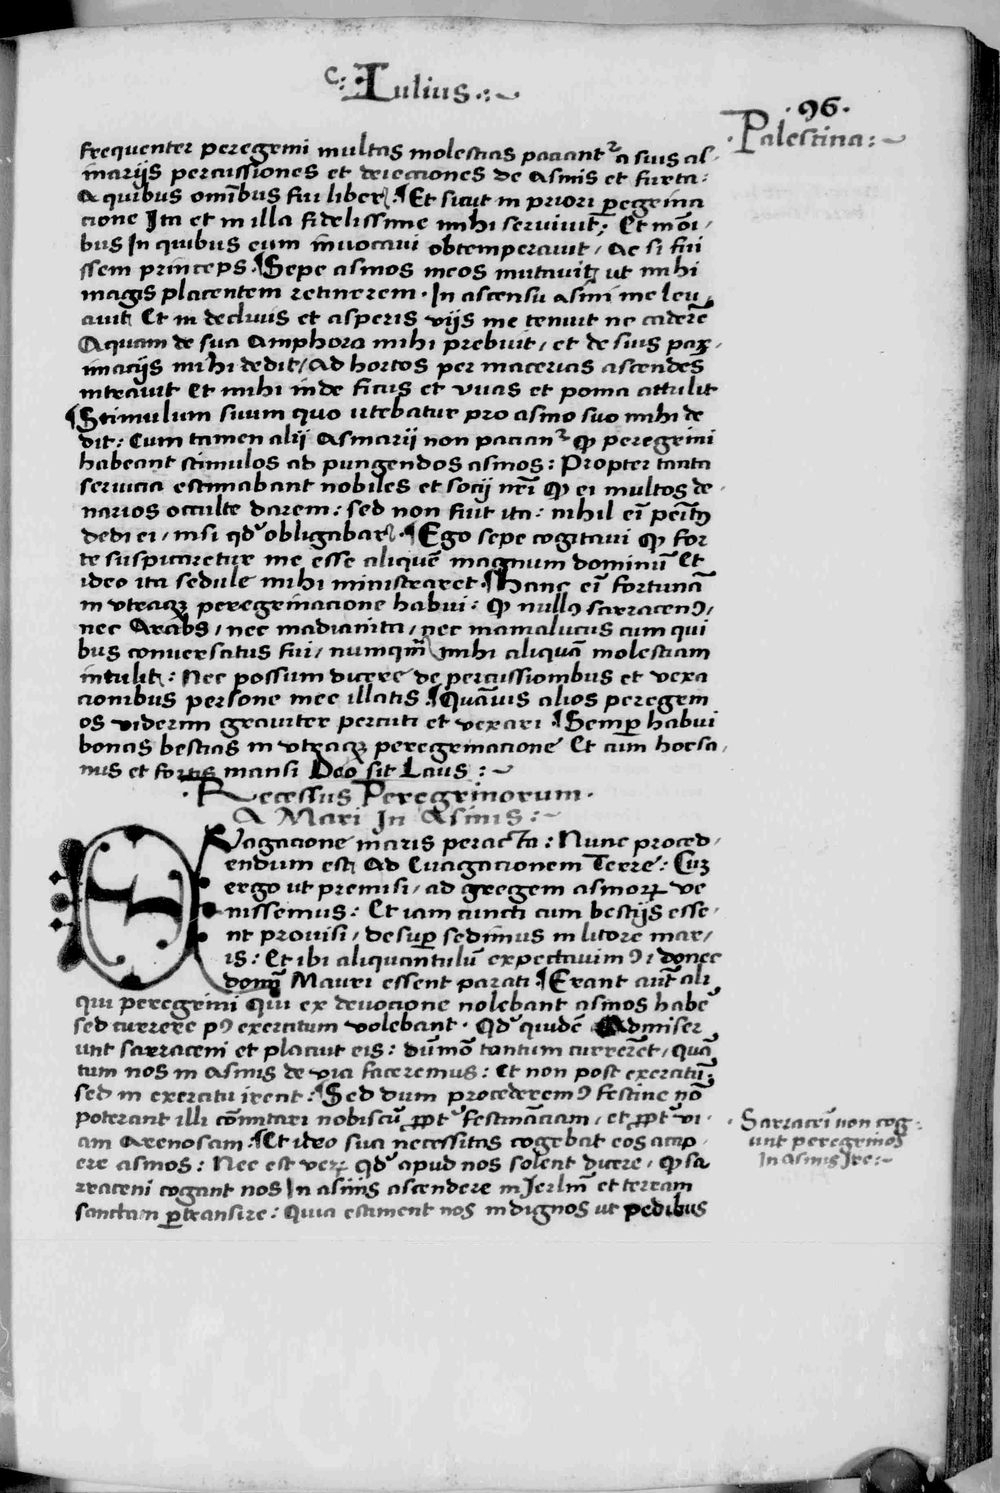 C: Iulius :~
· 96 ·
· Palestina :~
frequenter peregrini multas molestias paciantr a suis as/
inariis percussiones et deiectiones de Asinis et furta:
A quibus omībus fui liber. ¶ Et sicut in priori peregrina
cione Ita et in illa fidelissime mihi serviuit; Et in oī/
bus In quibus eum invocaui obtemperauit / Ac si fui
ssem princeps. ¶ Sepe asinos meos mutauit ut mihi
magis placentem retinerem · In ascensu asini me leu/
auit Et in decliuis et asperis viis me tenuit ne caderē
Aquam de sua Amphora mihi prebuit / et de suis pax/
imaciis mihi dedit / Ad hortos per macerias ascendēs
intrauit Et mihi inde ficus et vuas et poma attulit
¶ Stimulum suum quo utebatur pro asino suo mihi de
dit: Cum tamen alij Asinarij non pacianr qp peregrini
habeant stimulos ad pungendos asinos: Propter tanta
seruicia estimabant nobiles et socij nrī qp ei multos de/
narios occulte darem: sed non fuit ita: nihil eī penitꝰ
dedi ei / nisi qd obligabar · ¶ Ego sepe cogitaui qp for
te suspicaretur me esse aliquē magnum dominū Et
ideo ita sedule mihi ministraret · ¶ hanc eī fortunā
in vtraqꝫ peregrinacione habui: qp nullꝰ sarracenꝰ /
nec Arabs / nec madianita / nec mamalucus cum qui
bus conuersatus fui / numqm̄ mihi aliquā molestiam
intulit: Nec possum dicere de percussionibus et vexa
cionibus persone mee illatis · ¶ Quāuis alios peregrin
os viderim grauiter percuti et vexari · ¶ Semꝑ habui
bonas bestias in vtraqꝫ peregrinacione Et cum hoc sa/
nus et fortis mansi Deo sit Laus :~
· Recessus Peregrinorum ·
A Mari In Asinis :~
Evagacione maris peracta: Nunc proced/
endum est Ad Euagacionem Terre: Cuꝫ
ergo ut premisi / ad gregem asinoꝝ ve
nissemus: Et iam cuncti cum bestijs esse/
nt prouisi / desuꝑ sedimus in litore mar/
is: Et ibi aliquantulū expectauimꝰ / donec
domī Mauri essent parati · ¶ Erant aut̄ ali/
qui peregrini Qui ex deuocione nolebant asinos habē
sed currere pꝰ exercitum volebant · Qd quidē Admiser/
unt sarraceni et placuit eis: dūmō tantum currerēt / quā
tum nos in Asinis de via faceremus: Et non post exercitū:
sed in exercitu irent: ¶ Sed dum procederemꝰ festine nō
poterant illi cōmitari nobiscū ꝓpt festināciam / et ꝓpt vi/
am Arenosam · ¶ Et ideo sua necessitas cogebat eos accip/
ere asinos: Nec est veꝝ Qd apud nos solent dicere / qp sa
rraceni cogant nos In asinis ascendere in Jerlm̄ et terram
sanctam ꝑtransire: Quia estiment nos indignos ut pedibus
· Sarraceī non cog:
unt peregrinos
In Asinis Ire:~